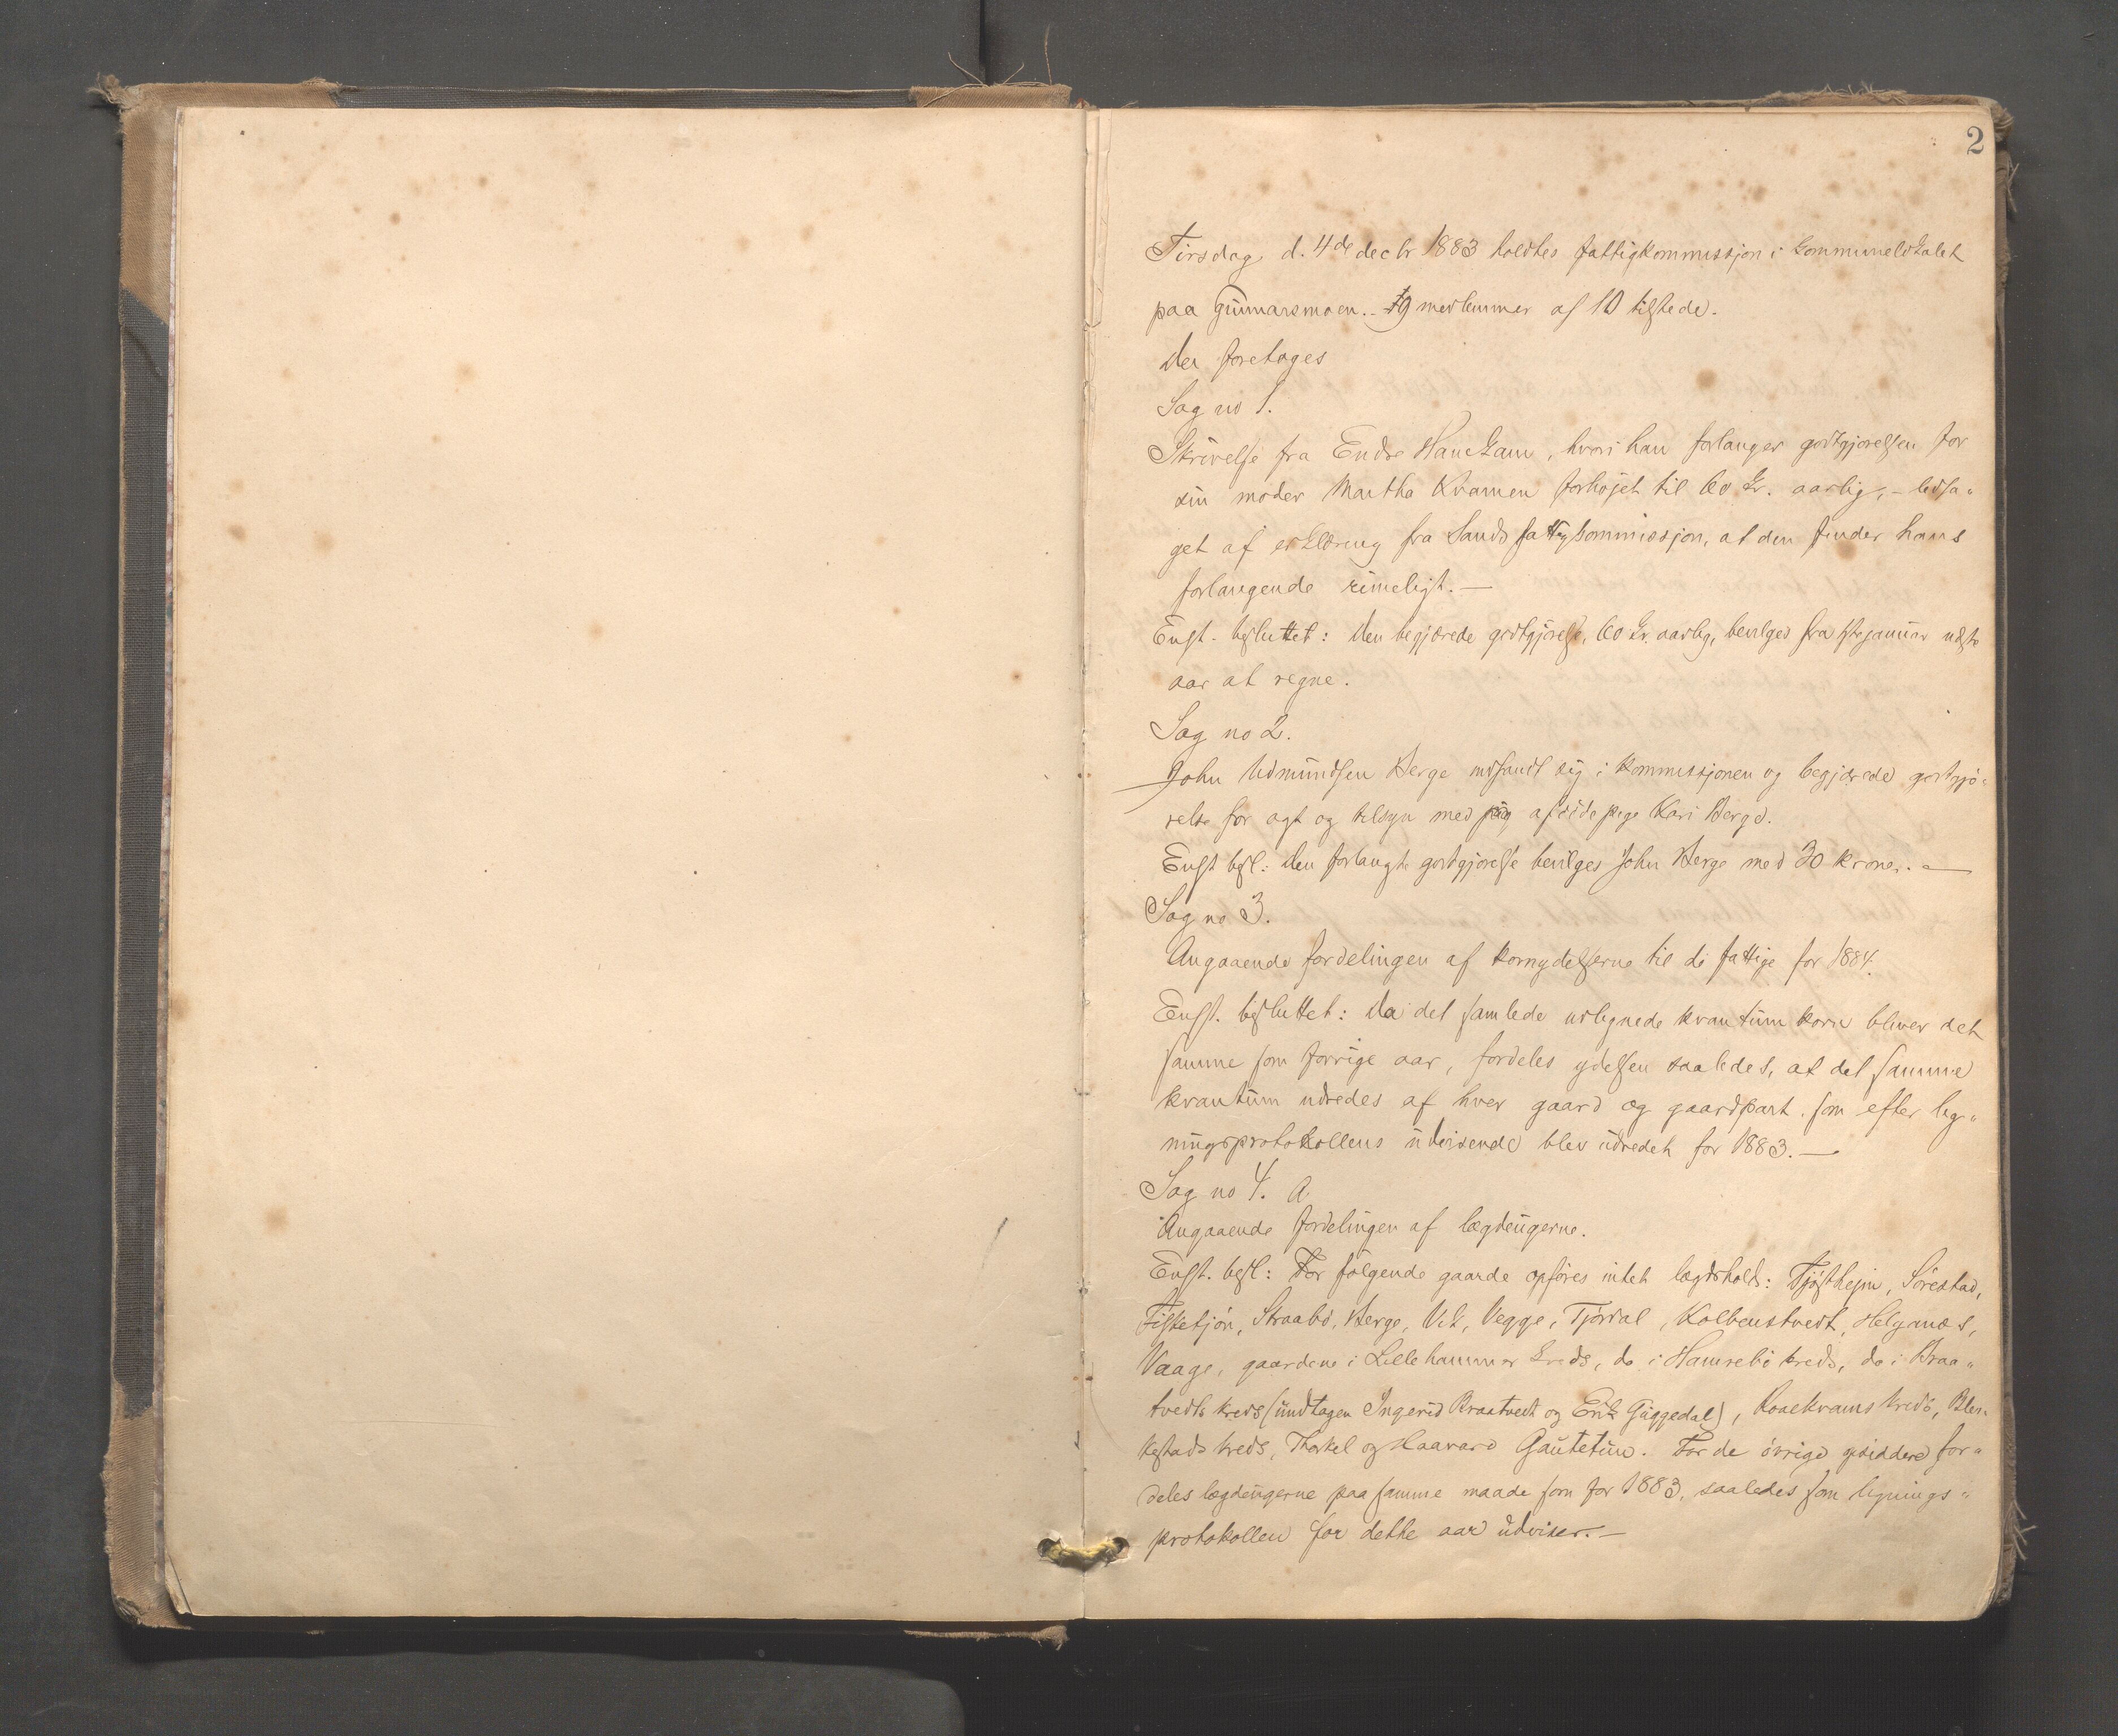 2
Tirsdag d. 4de decbr 1883 holdtes fattigkommissjon i kommunelokalet
paa Gunnarsmoen. 9 medlemmer af 10 tilstede.
Der foretoges
Sag no 1.
Skrivelse fra Endre Hauekam, hvori han forlanger godtgjørelsen for
sin moder Martha Kvamen forhøjet til 60 kr. aarlig, – ledsa-
get af erklæring fra Sands fattigkommissjon, at den finder hans
forlangende rimeligt. –
Enst. besluttet: Den begjærede godtgjørelse, 60 kr. aarlig, bevilges fra 1ste januar næste
aar at regne.
Sag no 2.
John Udmundsen Berge indfandt sig i kommissjonen og begjærede godtgjø-
relse for agt og tilsyn med afsidde pige Kari Berge.
Enst besl: Den forlangte godtgjørelse bevilges John Berge med 30 kroner. –
Sag no 3.
Angaaende fordelingen af kornydelserne til de fattige for 1884.
Enst. besluttet: Da det samlede udlignede kvantum korn bliver det
samme som forrige aar, fordeles ydelsen saaledes, at det samme
kvantum udredes af hver gaard og gaardpart, som efter lig-
ningsprotokollens udvisende blev udredet for 1883. –
Sag no 4. a
Angaaende fordelingen af lægdeugerne.
Enst. besl: For følgende gaarde opføres intet lægdehold: Tjøstheim, Sørestad,
Fisketjøn, Straabø, Berge, Vik, Vegge, Tjørdal, Kolbenstvedt, Helganæs,
Vaage, gaardene i Lillehammer kreds, do i Hamrebø kreds, do i Braa-
tvedts kreds (undtagen Ingerid Braatvedt og Erik Guggedal), Roaldkvams kreds, Bler-
kestads kreds, Thorkel og Haavard Gautetun. For de øvrige opsiddere for-
deles lægdeugerne paa samme maade som for 1883, saaledes som lignings-
protokollen for dette aar udviser. –